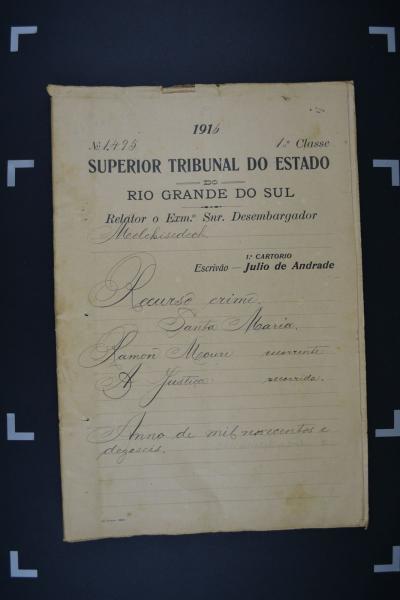 1916
Nº 1495 1.ª Classe
SUPERIOR TRIBUNAL DO ESTADO
DO
RIO GRANDE DO SUL
Relator o Exm.º Snr. Desembargador
Melchisedech
1.º CARTORIO
Escrivão — Julio de Andrade
Recurso crime.
Santa Maria.
Ramon Moure recorrente
A Justiça recorrida.
Anno de mil novecentos e
dezeseis.